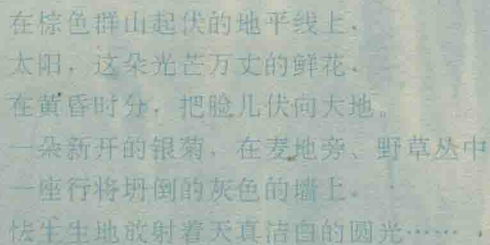 在棕色群山起伏的地平线上，
太阳，这朵光芒万丈的鲜花，
在黄昏时分，把脸儿伏向大地。
一朵新开的银菊，在麦地旁、野草丛中
一座行将坍倒的灰色的墙上，
怯生生地放射着天真洁白的圆光……，